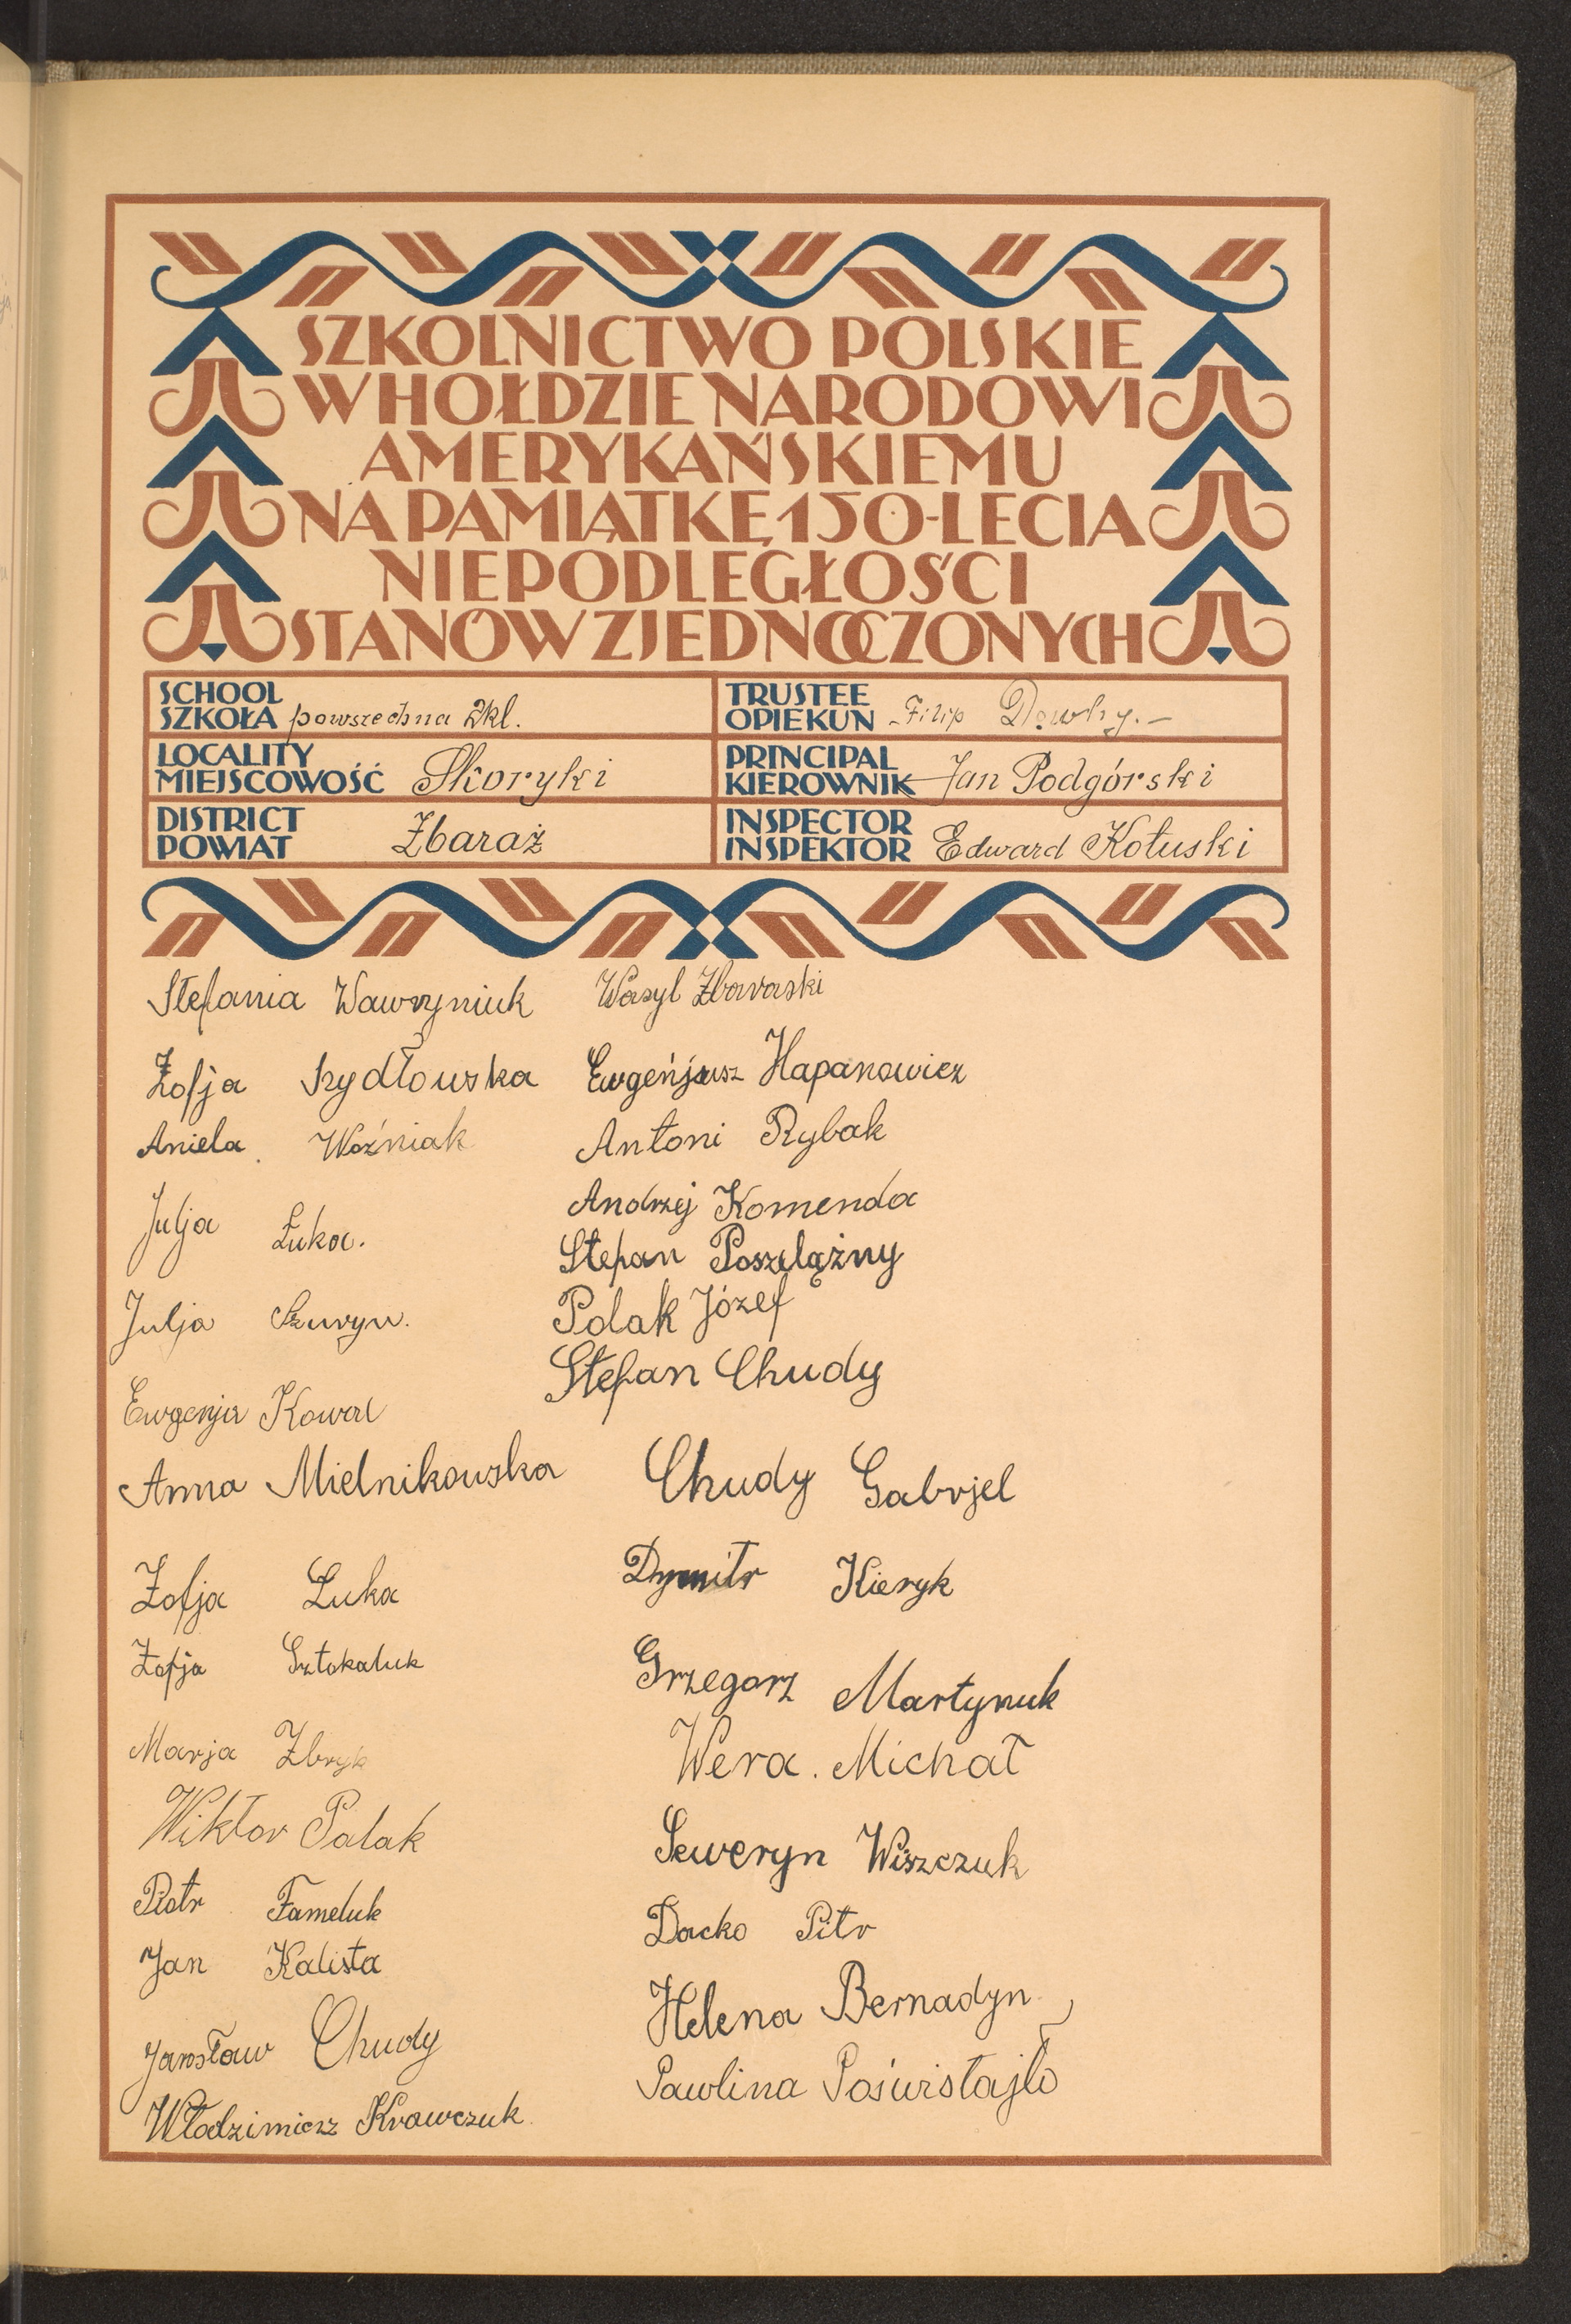 SZKOLNICTWO POLSKIE
W HOŁDZIE NARODOWI
AMERYKAŃSKIEMU
NA PAMIĄTKĘ 150-LECIA
NIEPODLEGŁOŚCI
STANÓW ZJEDNOCZONYCH
SCHOOL
SZKOŁA powszechna 2kl.
LOCALITY
MIEJSCOWOŚĆ Skoryki
DISTRICT
POWIAT Zbaraż
TRUSTEE
OPIEKUN Filip
PRINCIPAL
KIEROWNIK Jan Podgórski
INSPECTOR
INSPEKTOR Edward Kotuski
Stefania Wawryniuk
Zofja Szydłowska
Aniela Woźniak
Julja Łuka.
Julja
Ewgenja Kowal
Anna Mielnikowska
Zofja Łuka
Zofja Sztokaluk
Marja Zbryk
Wiktor Palak
Piotr Fameluk
Jan Kalista
Jarosław Chudy
Włodzimierz Krawczuk
Wasyl Zbaraski
Ewgeńjusz Hapanowicz
Antoni Rybak
Andrzej Komenda
Stefan Poszelążny
Polak Józef
Stefan Chudy
Chudy Gabrjel
Dymitr Kieryk
Grzegorz Martynuk
Wera. Michał
Seweryn Wiszczuk
Dacko Pitr
Helena Bernadyn
Pawlina Poświstajło